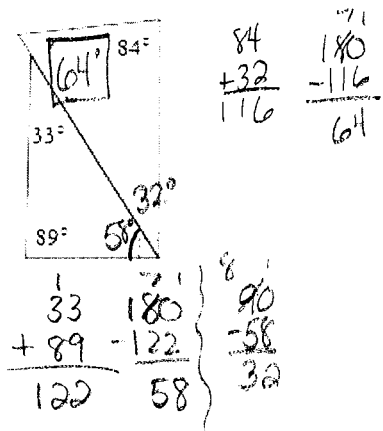 64° 84°
33°
32°
89° 58°
84
+32
116
180
-116
64
33
+ 89
122
180
-122
58
90
-58
32